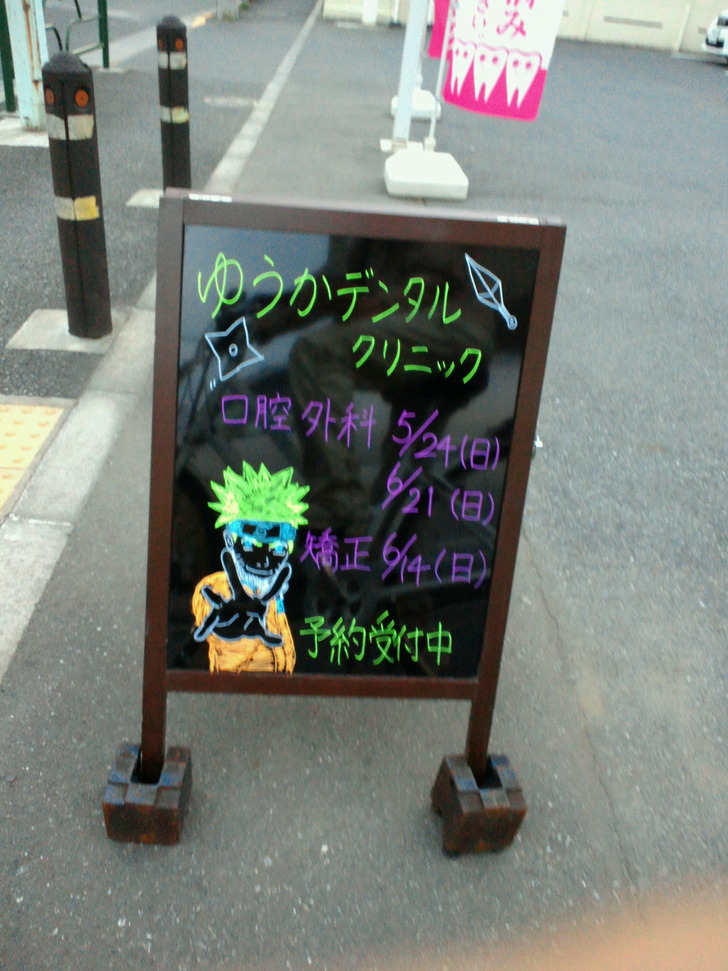 み
ゆうかデンタル
クリニック
口腔外科 5/24(日)
6/21(日)
矯正 6/14(日)
予約受付中